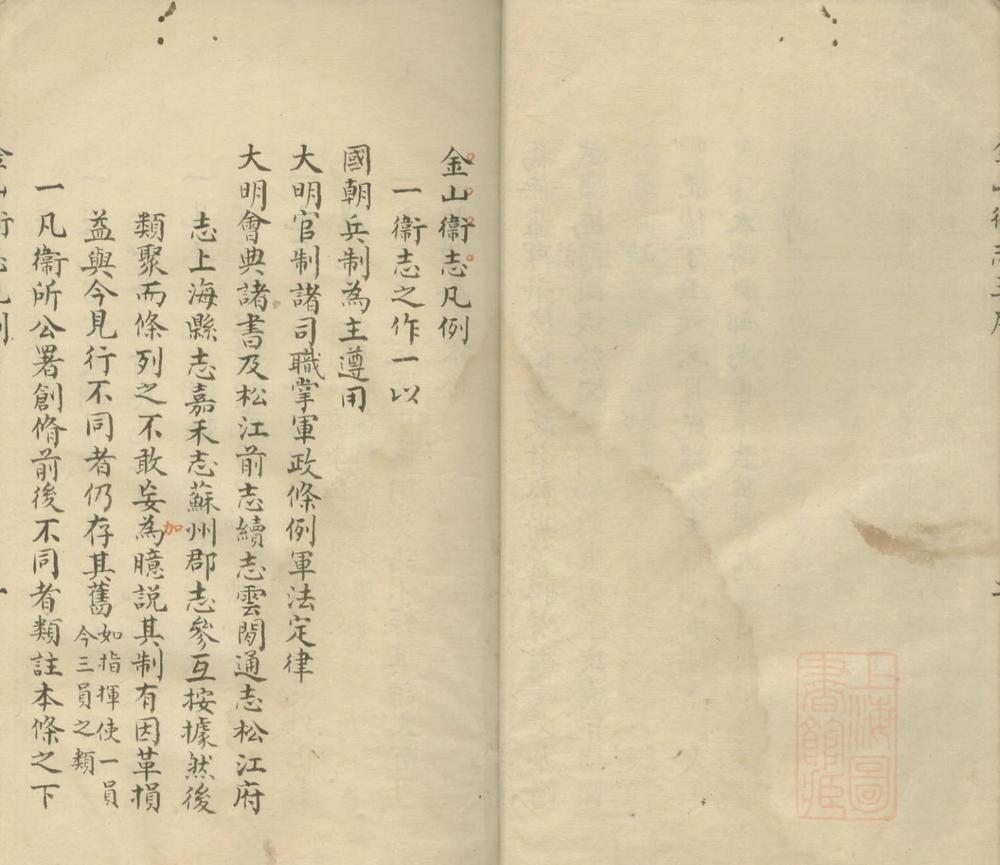 金山衞志凡例
一衞志之作一以
國朝兵制為主遵用
大明官制諸司職掌軍政條例軍法定律
大明會典諸書及松江前志續志雲間通志松江府
志上海縣志嘉禾志蘇州郡志參互按據然後
類聚而條列之不敢妄為臆説其制有因革損
加
益與今見行不同者仍存其舊如指揮使一員
今三員之類
一凡衞所公署創脩前後不同者類註本條之下
上海圖
書館藏